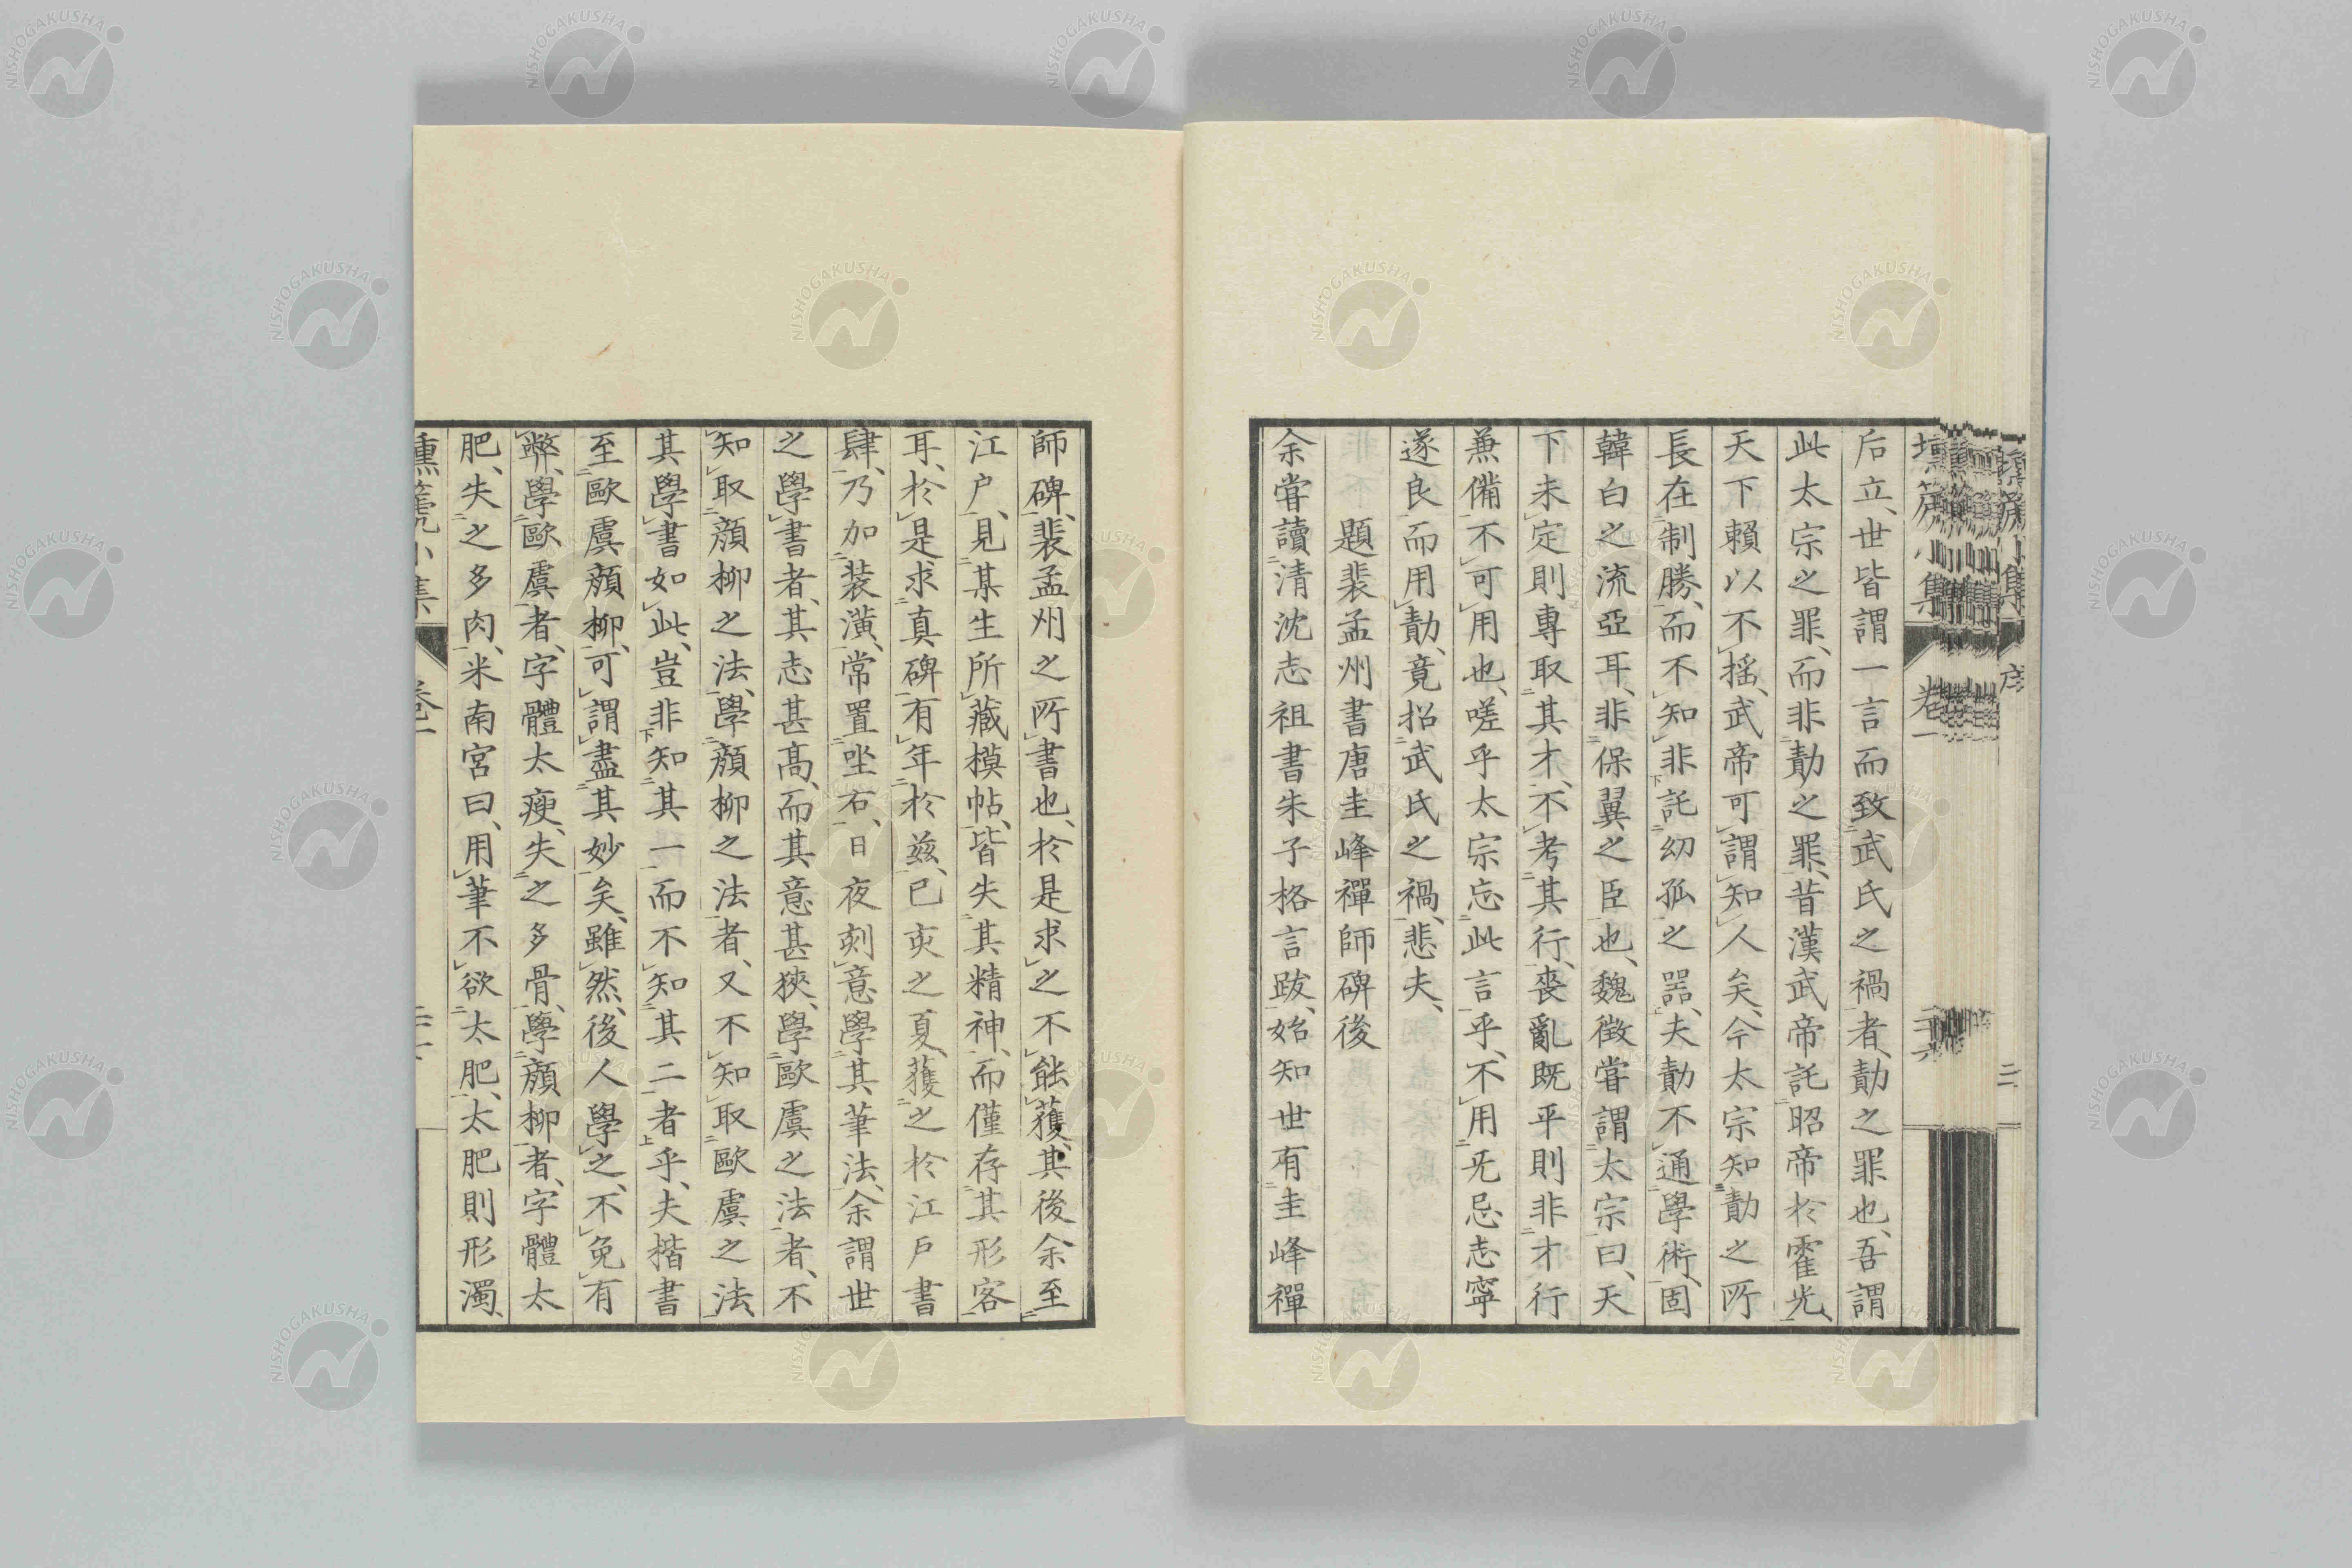 后立、世皆謂一言而致武氏之禍者、勣之罪也、吾謂
此太宗之罪、而非勣之罪、昔漢武帝託昭帝於霍光、
天下賴以不搖、武帝可謂知人矣、今太宗知勣之所
長在制勝、而不知非託幼孤之器、夫勣不通學術、固
韓白之流亞耳、非保翼之臣也、魏徵嘗謂太宗曰、天
下未定則專取其才、不考其行、喪亂既平則非才行
兼備不可用也、嗟乎太宗忘此言乎、不用旡忌志寧
遂良而用勣、竟招武氏之禍、悲夫、
題裴孟州書唐圭峰禪師碑後
余嘗讀清沈志祖書朱子格言跋、始知世有圭峰禪
師碑、裴孟州之所書也、於是求之不能獲、其後余至
江戶、見某生所藏模帖、皆失其精神、而僅存其形容
耳、於是求真碑有年於茲、已亥之夏、獲之於江戶書
肆、乃加装潢、常置坐右、日夜刻意學其筆法、余謂世
之學書者、其志甚高、而其意甚狹、學歐虞之法者、不
知取顏柳之法、學顏柳之法者、又不知取歐虞之法、
其學書如此、豈非知其一而不知其二者乎、夫楷書
至歐虞顏柳、可謂盡其妙矣、雖然、後人學之、不免有
弊、學歐虞者、字體太瘦、失之多骨、學顏柳者、字體太
肥、失之多肉、米南宮曰、用筆不欲太肥、太肥則形濁、
壎篪小集 卷一
NISHOGAKUSHA